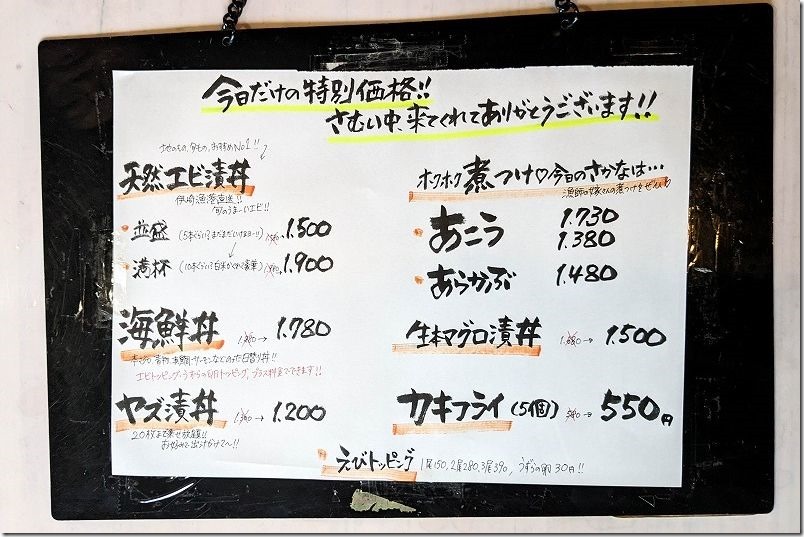 今日だけの特別価格!!
さむい中、来てくれてありがとうございます!!
地のもの、旬もの、おすすめNo1!!
天然エビ漬丼
漁港直送!!
旬のうまーいエビ!!
並盛 1.500
満杯 1.900
海鮮丼 → 1.780
サーモンなどのった日替り丼!!
エビトッピング、うずらの卵トッピング、プラス料金でできます!!
ヤズ漬丼 → 1.200
20枚まで乗せ放題!!
ホクホク煮つけ♡今日のさかなは…
漁師の嫁さんの煮つけをぜひ
あこう 1.730
1.380
あらかぶ 1.480
生本マグロ漬丼 → 1.500
カキフライ(5個) → 550円
えびトッピング 1尾150、2尾280、3尾390、うずらの卵30円!!